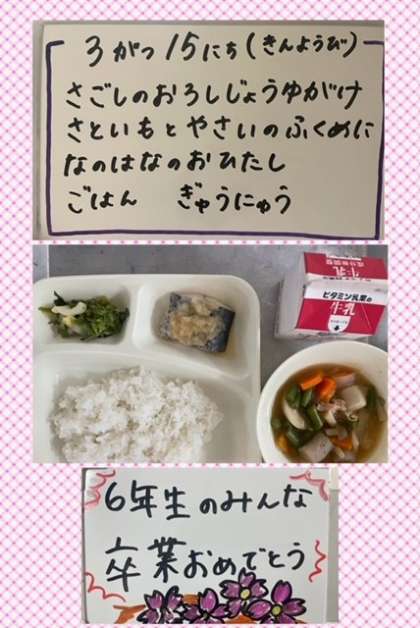 3がつ15にち(きんようび)
さごしのおろしじょうゆがけ
さといもとやさいのふくめに
なのはなのおひたし
ごはん ぎゅうにゅう
牛乳
ビタミン乳業の
牛乳
6年生のみんな
卒業おめでとう